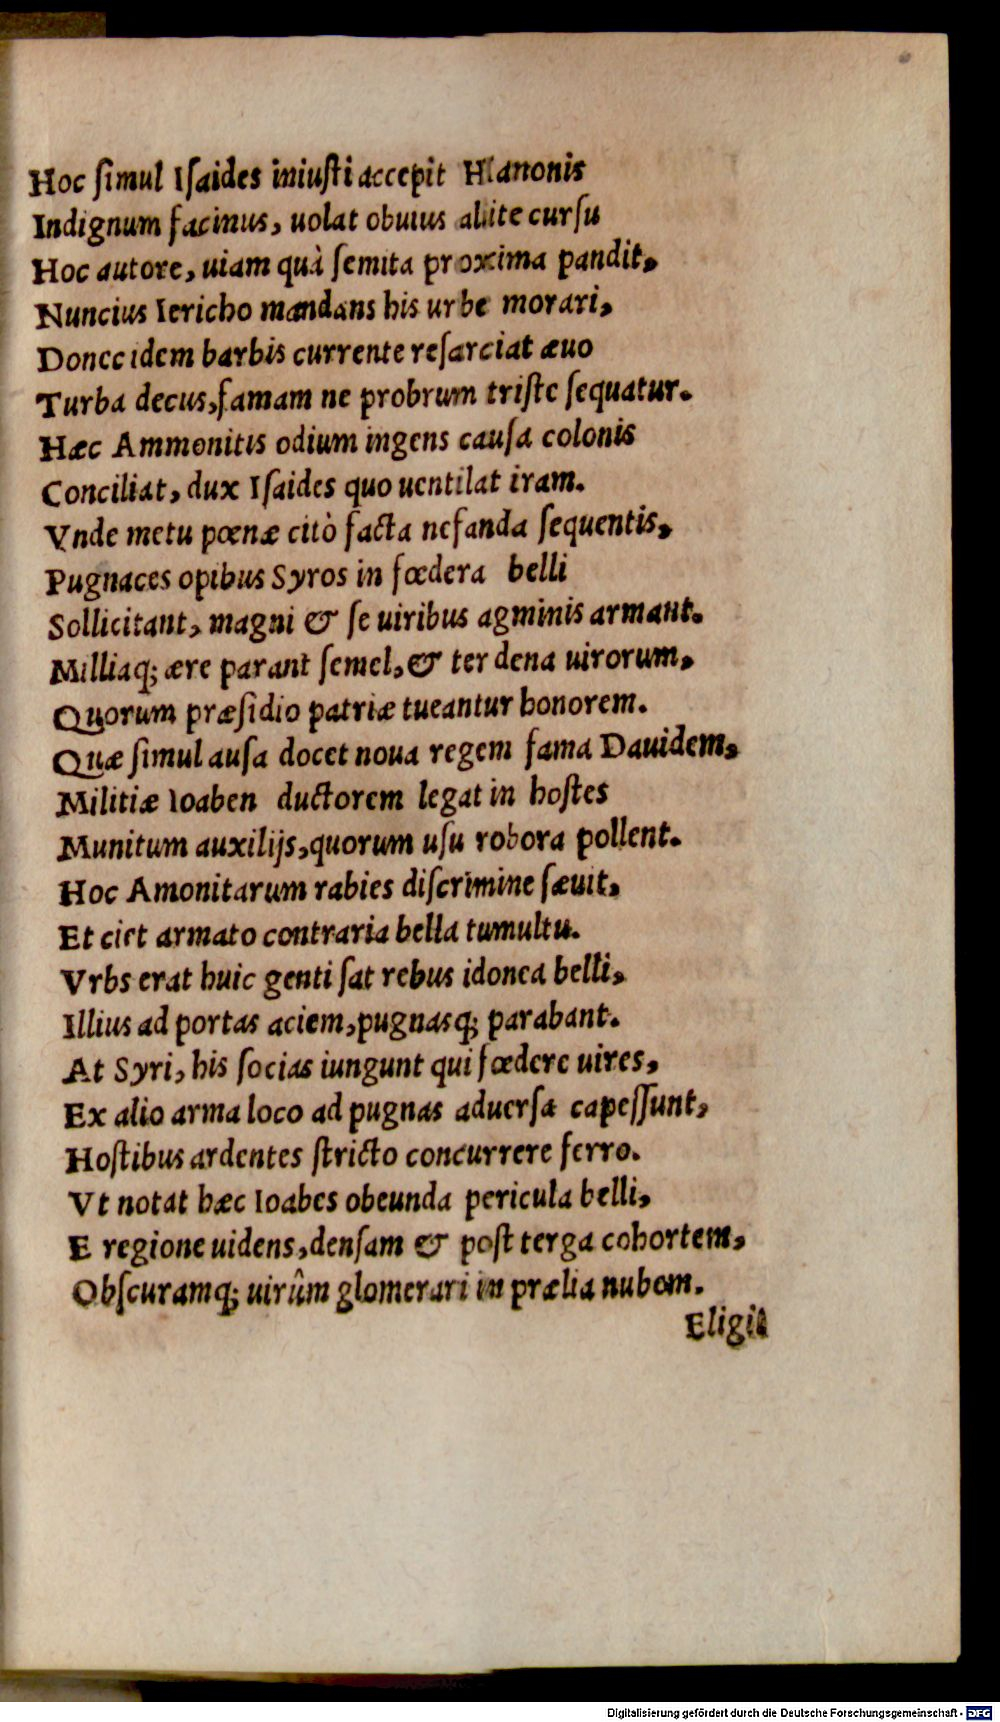 Hoc ſimul Iſaides iniuſti accepit Hanonis
Indignum facinus, uolat obuius alite curſu
Hoc autore, uiam quà ſemita proxima pandit,
Nuncius Iericho mandans his urbe morari,
Donec idem barbis currente reſarciat æuo
Turba decus, famam ne probrum triſte ſequatur.
Hæc Ammonitis odium ingens cauſa colonis
Conciliat, dux Iſaides quo uentilat iram.
Vnde metu pœnæ citò facta nefanda ſequentis,
Pugnaces opibus Syros in fœdera belli
Sollicitant, magni & ſe uiribus agminis armant.
Milliaq; ære parant ſemel, & ter dena uirorum,
Quorum præſidio patriæ tueantur honorem.
Quæ ſimul auſa docet noua regem fama Dauidem,
Militiæ Ioaben ductorem legat in hoſtes
Munitum auxilijs, quorum uſu robora pollent.
Hoc Amonitarum rabies diſcrimine ſæuit,
Et ciet armato contraria bella tumultu.
Vrbs erat huic genti ſat rebus idonea belli,
Illius ad portas aciem, pugnasq; parabant.
At Syri, his ſocias iungunt qui fœdere uires,
Ex alio arma loco ad pugnas aduerſa capeſſunt,
Hoſtibus ardentes ſtricto concurrere ferro.
Vt notat hæc Ioabes obeunda pericula belli,
E regione uidens, denſam & poſt terga cohortem,
Obſcuramq; uirûm glomerari in prælia nubem.
Eligit
Digitalisierung gefördert durch die Deutsche Forschungsgemeinschaft - DFG